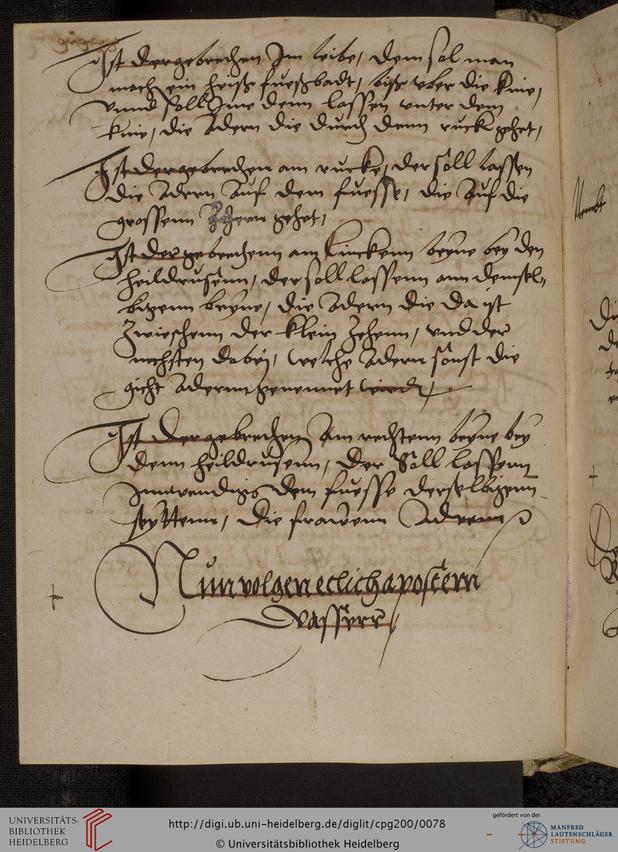 Ist der gebrechen Im leibe, dem sol man
mach ein heiß fueßbadt, biß vber die knie,
vnnd soll Ime denn lassen vnter dem
knie, die Adern die durch denn ruck gehet,
Ist der gebrechen am rucke, der soll lassen
die Adern auf dem fuesse, die auf die
grossenn Zehenn gehet,
Ist der gebrechenn am linckenn beyne bey den
heildrusenn, der soll lassenn ann demsel-
bigenn beyne, die Adern die da ist
Zwieschenn der klein Zehenn, vnd der
nechsten dabej, welche Adern sonst die
gicht Adernn genennet wirdt,
Ist der gebrechen Am rechtenn beyne bey
denn heildrusenn, der Soll lassenn
Innwendig dem fuesse derselbigenn
seyttenn, die frawenn Adernn
Nun volgen etlich apostem
Wassere
UNIVERSITÄTS-
BIBLIOTHEK
HEIDELBERG
http://digi.ub.uni-heidelberg.de/diglit/cpg200/0078
© Universitätsbibliothek Heidelberg
gefördert von der
MANFRED
LAUTENSCHLÄGER
STIFTUNG